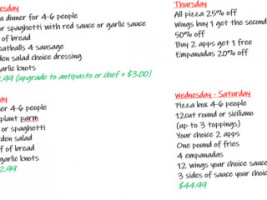 esday
a dinner for 4-6 people
or spaghetti with red sauce or garlic sauce
of bread
eatballs 4 sausage
den salad choice dressing
garlic knots
.99 (upgrade to antipasto or chef + $3.00)
ay
er for 4-6 people
plant parm
or spaghetti
den salad
f of bread
garlic knots
2.99
Thursday
All pizza 25% off
Wings buy 1 get the second
50% off
Buy 2 apps get 1 free
Empanadas 20% off
Wednesday - Saturday
Pizza box 4-6 people
12cut round or siciliano
(up to 3 toppings)
Your choice 2 apps
One pound of fries
4 empanadas
12 wings your choice sauce
3 sides of sauce your choic
$44.99